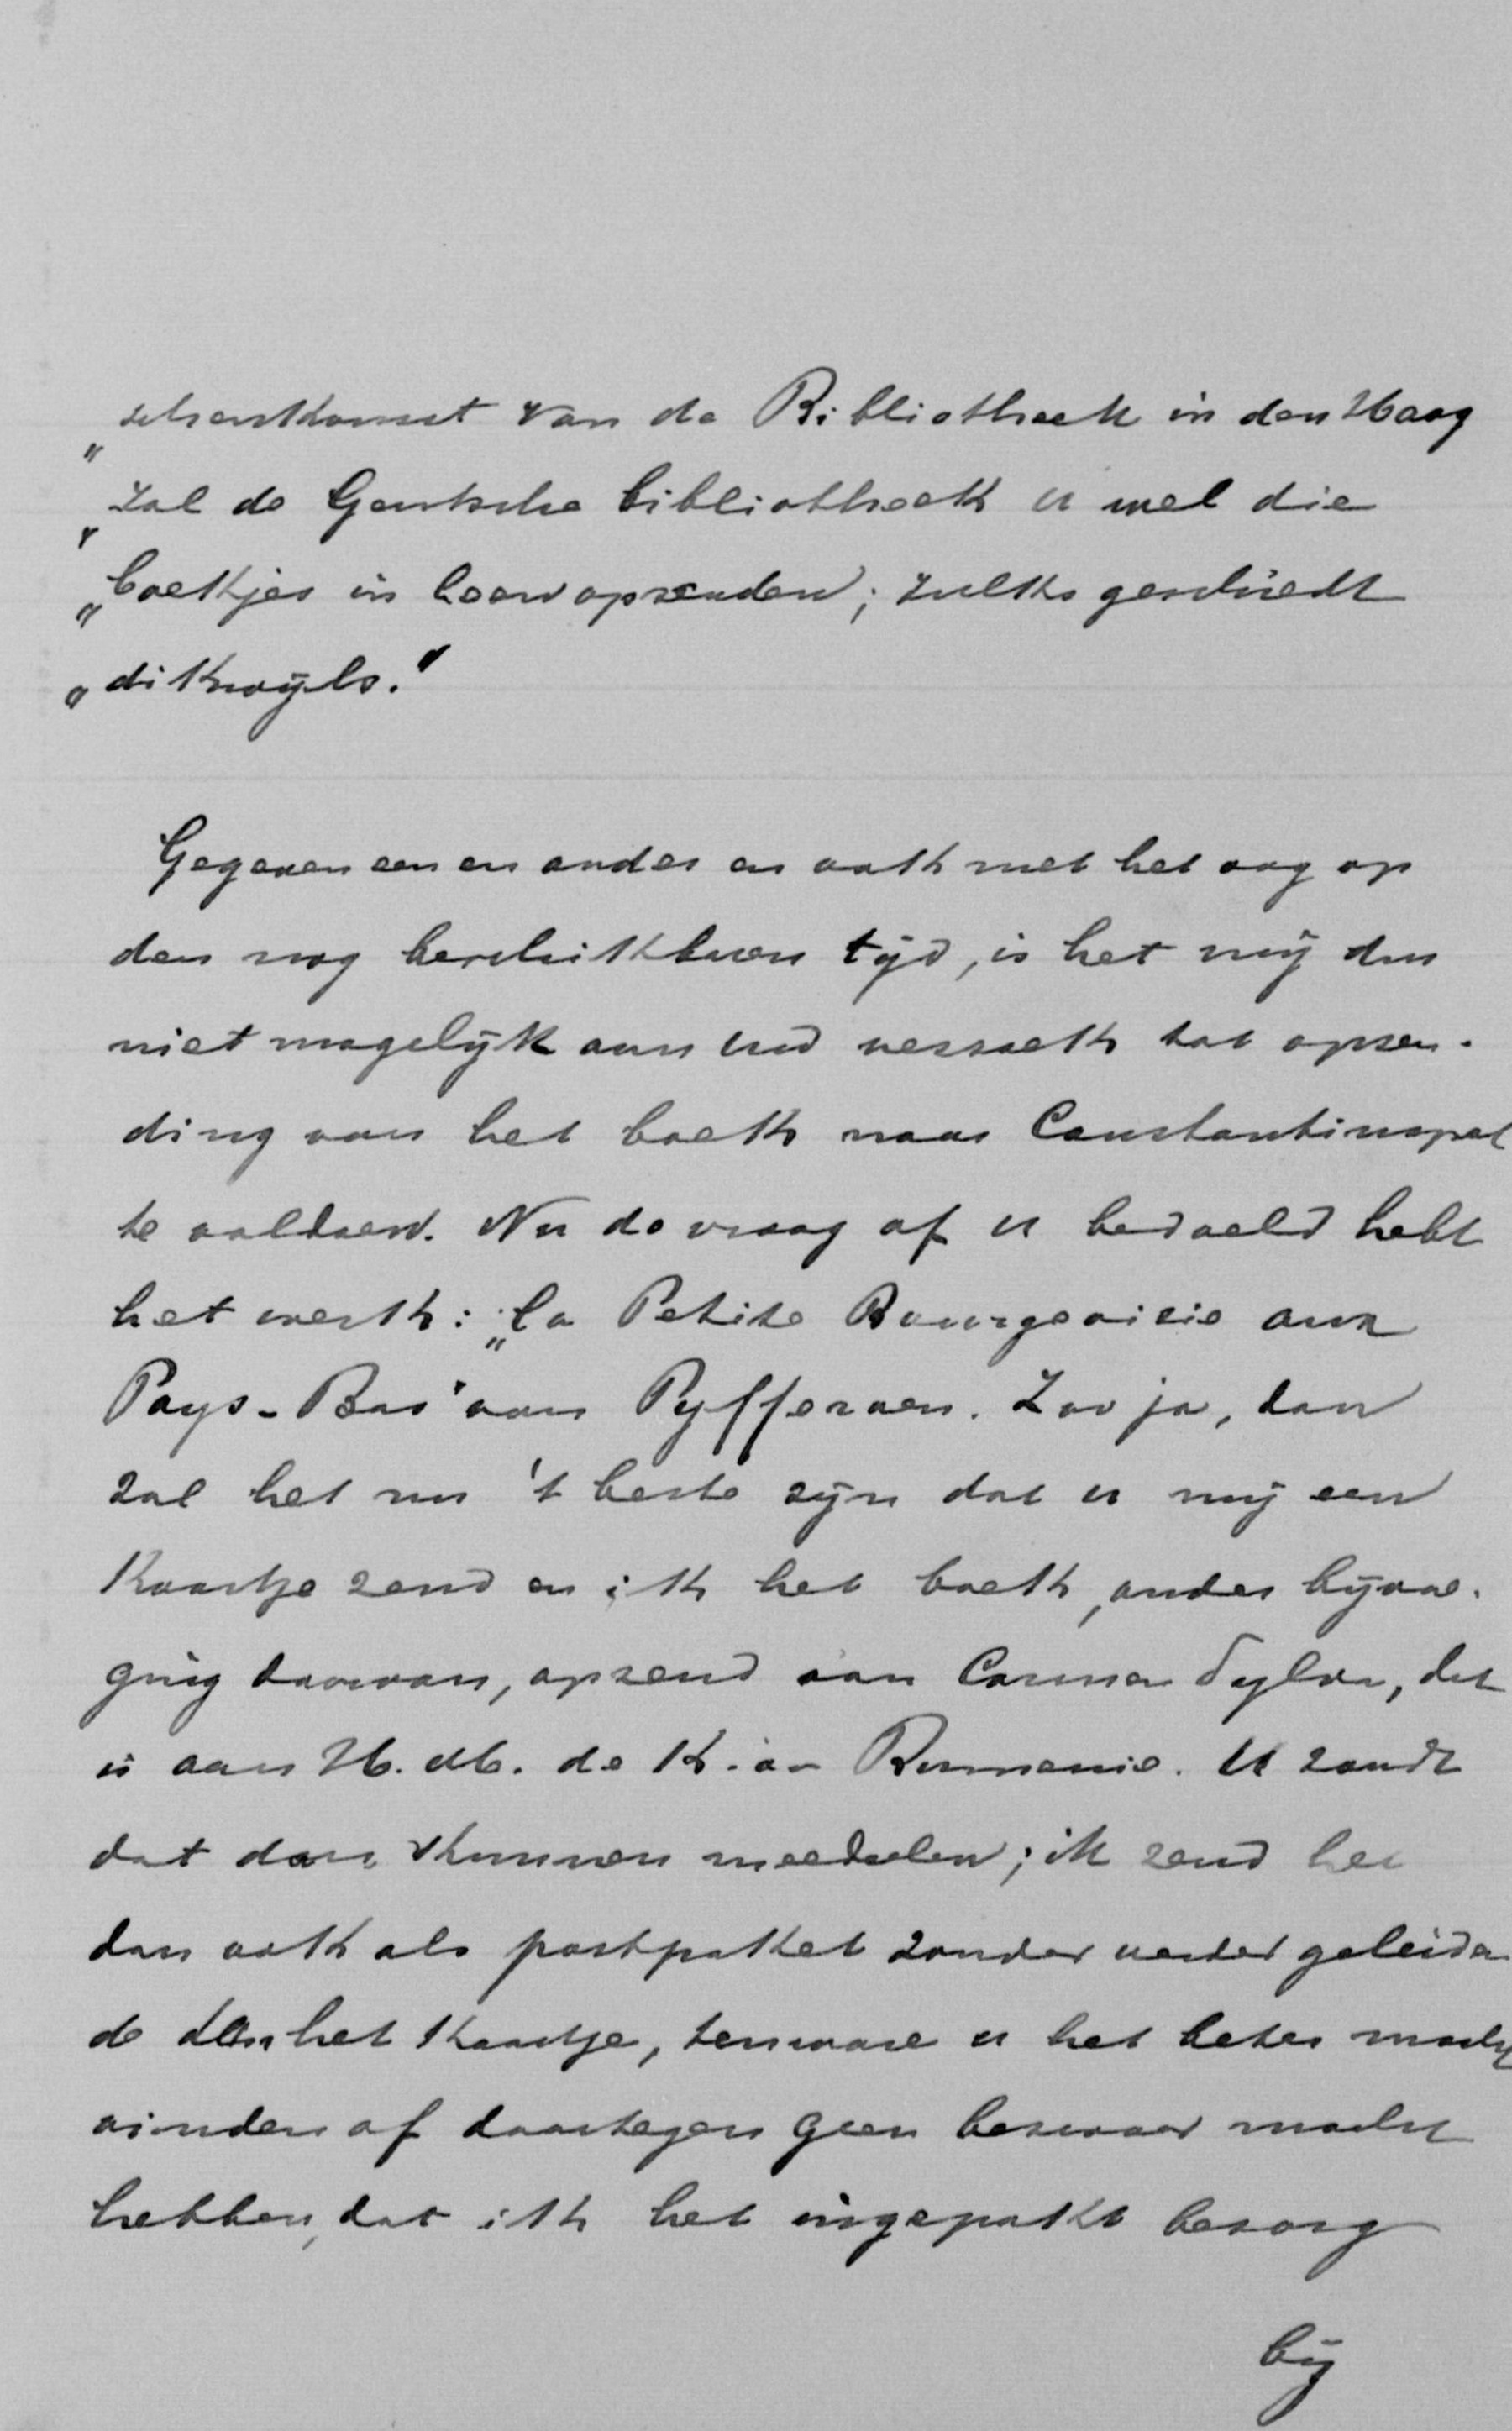 „schenkomst van de Bibliotheek in den Haag
„zal de Gentsche bibliotheek u wel die
„boekjes in leen opzenden; zulks geschiedt
„dikwijls."
Gegeven een en ander en ook met het oog op
den nog beschikbaren tijd, is het mij dus
niet mogelijk aan Uw verzoek tot opzen-
ding van het boek naar Constantinopel
te voldoen. Nu de vraag of u bedoeld hebt
het werk: „La Petite Bourgeoisie aux
Pays-Bas" van Pyfferoen. Zoo ja, dan
zal het nu 't beste zijn dat u mij een
kaartje zend en ik het boek, onder bijvoe-
ging daarvan, opzend aan Carmen Sylva, dat
is aan H.M. de K. v. Rumenie. U zoudt
dat dan kunnen meedeelen; ik zend het
dan ook als postpakket zonder verder geleiden-
de dan het kaartje, tenware u het beter mocht
vinden of daartegen geen bezwaar mocht
hebben, dat ik het ingepakt bezorg
bij